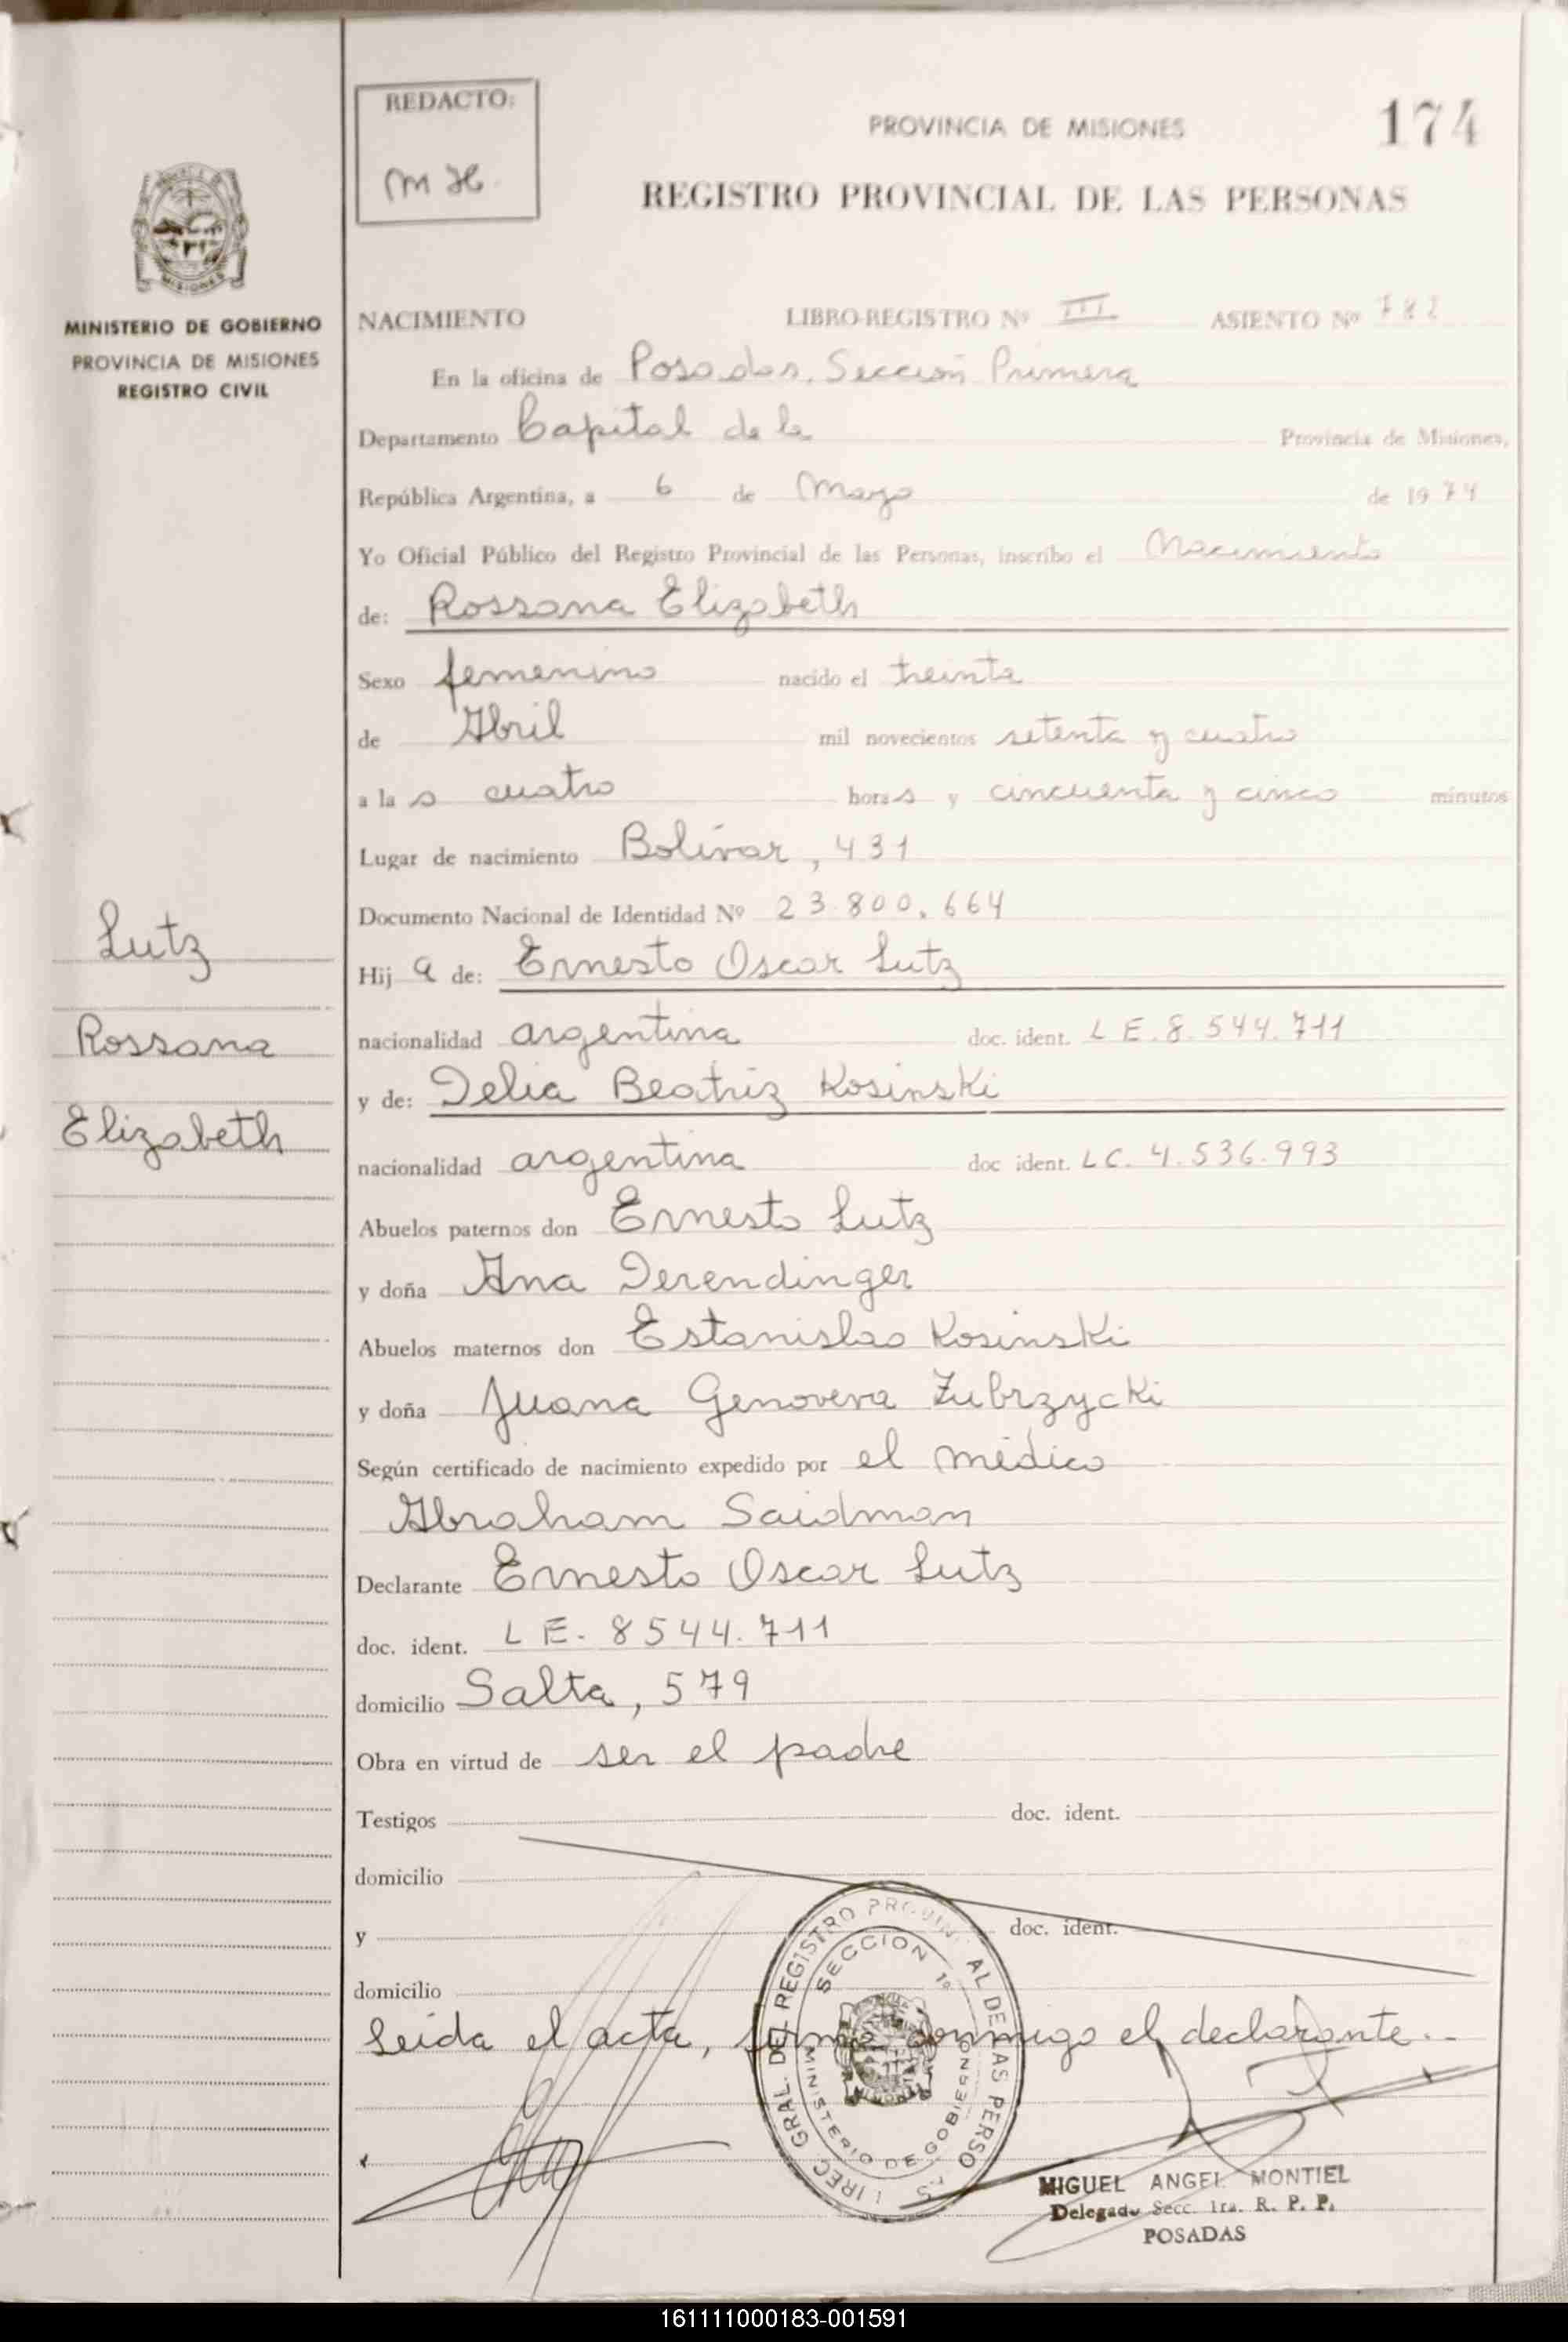 REDACTO:
M H.
PROVINCIA DE MISIONES
174
REGISTRO PROVINCIAL DE LAS PERSONAS
MISIONES
MINISTERIO DE GOBIERNO
PROVINCIA DE MISIONES
REGISTRO CIVIL
NACIMIENTO LIBRO-REGISTRO Nº III ASIENTO Nº 782
En la oficina de Posadas, Sección Primera
Departamento Capital de la Provincia de Misiones,
República Argentina, a 6 de Mayo de 1974
Yo Oficial Público del Registro Provincial de las Personas, inscribo el Nacimiento
de: Rossana Elizabeth
Sexo femenino nacido el treinta
de Abril mil novecientos setenta y cuatro
a las cuatro horas y cincuenta y cinco minutos
Lugar de nacimiento Bolívar, 431
Documento Nacional de Identidad Nº 23.800.664
Lutz
Rossana
Elizabeth
Hija de: Ernesto Oscar Lutz
nacionalidad argentina doc. ident. L E. 8.544.711
y de: Delia Beatriz Kosinski
nacionalidad argentina doc ident. LC. 4.536.993
Abuelos paternos don Ernesto Lutz
y doña Ana Derendinger
Abuelos maternos don Estanislao Kosinski
y doña Juana Genoveva Zubrzycki
Según certificado de nacimiento expedido por el médico
Abraham Saidman
Declarante Ernesto Oscar Lutz
doc. ident. L E. 8544.711
domicilio Salta, 579
Obra en virtud de ser el padre
Testigos doc. ident.
domicilio
y doc. ident.
domicilio
Leída el acta, firma conmigo el declarante.-
SECCION 1º
MINISTERIO DE GOBIERNO
MIGUEL ANGEL MONTIEL
Delegado Secc. 1ra. R. P. P.
POSADAS
161111000183-001591